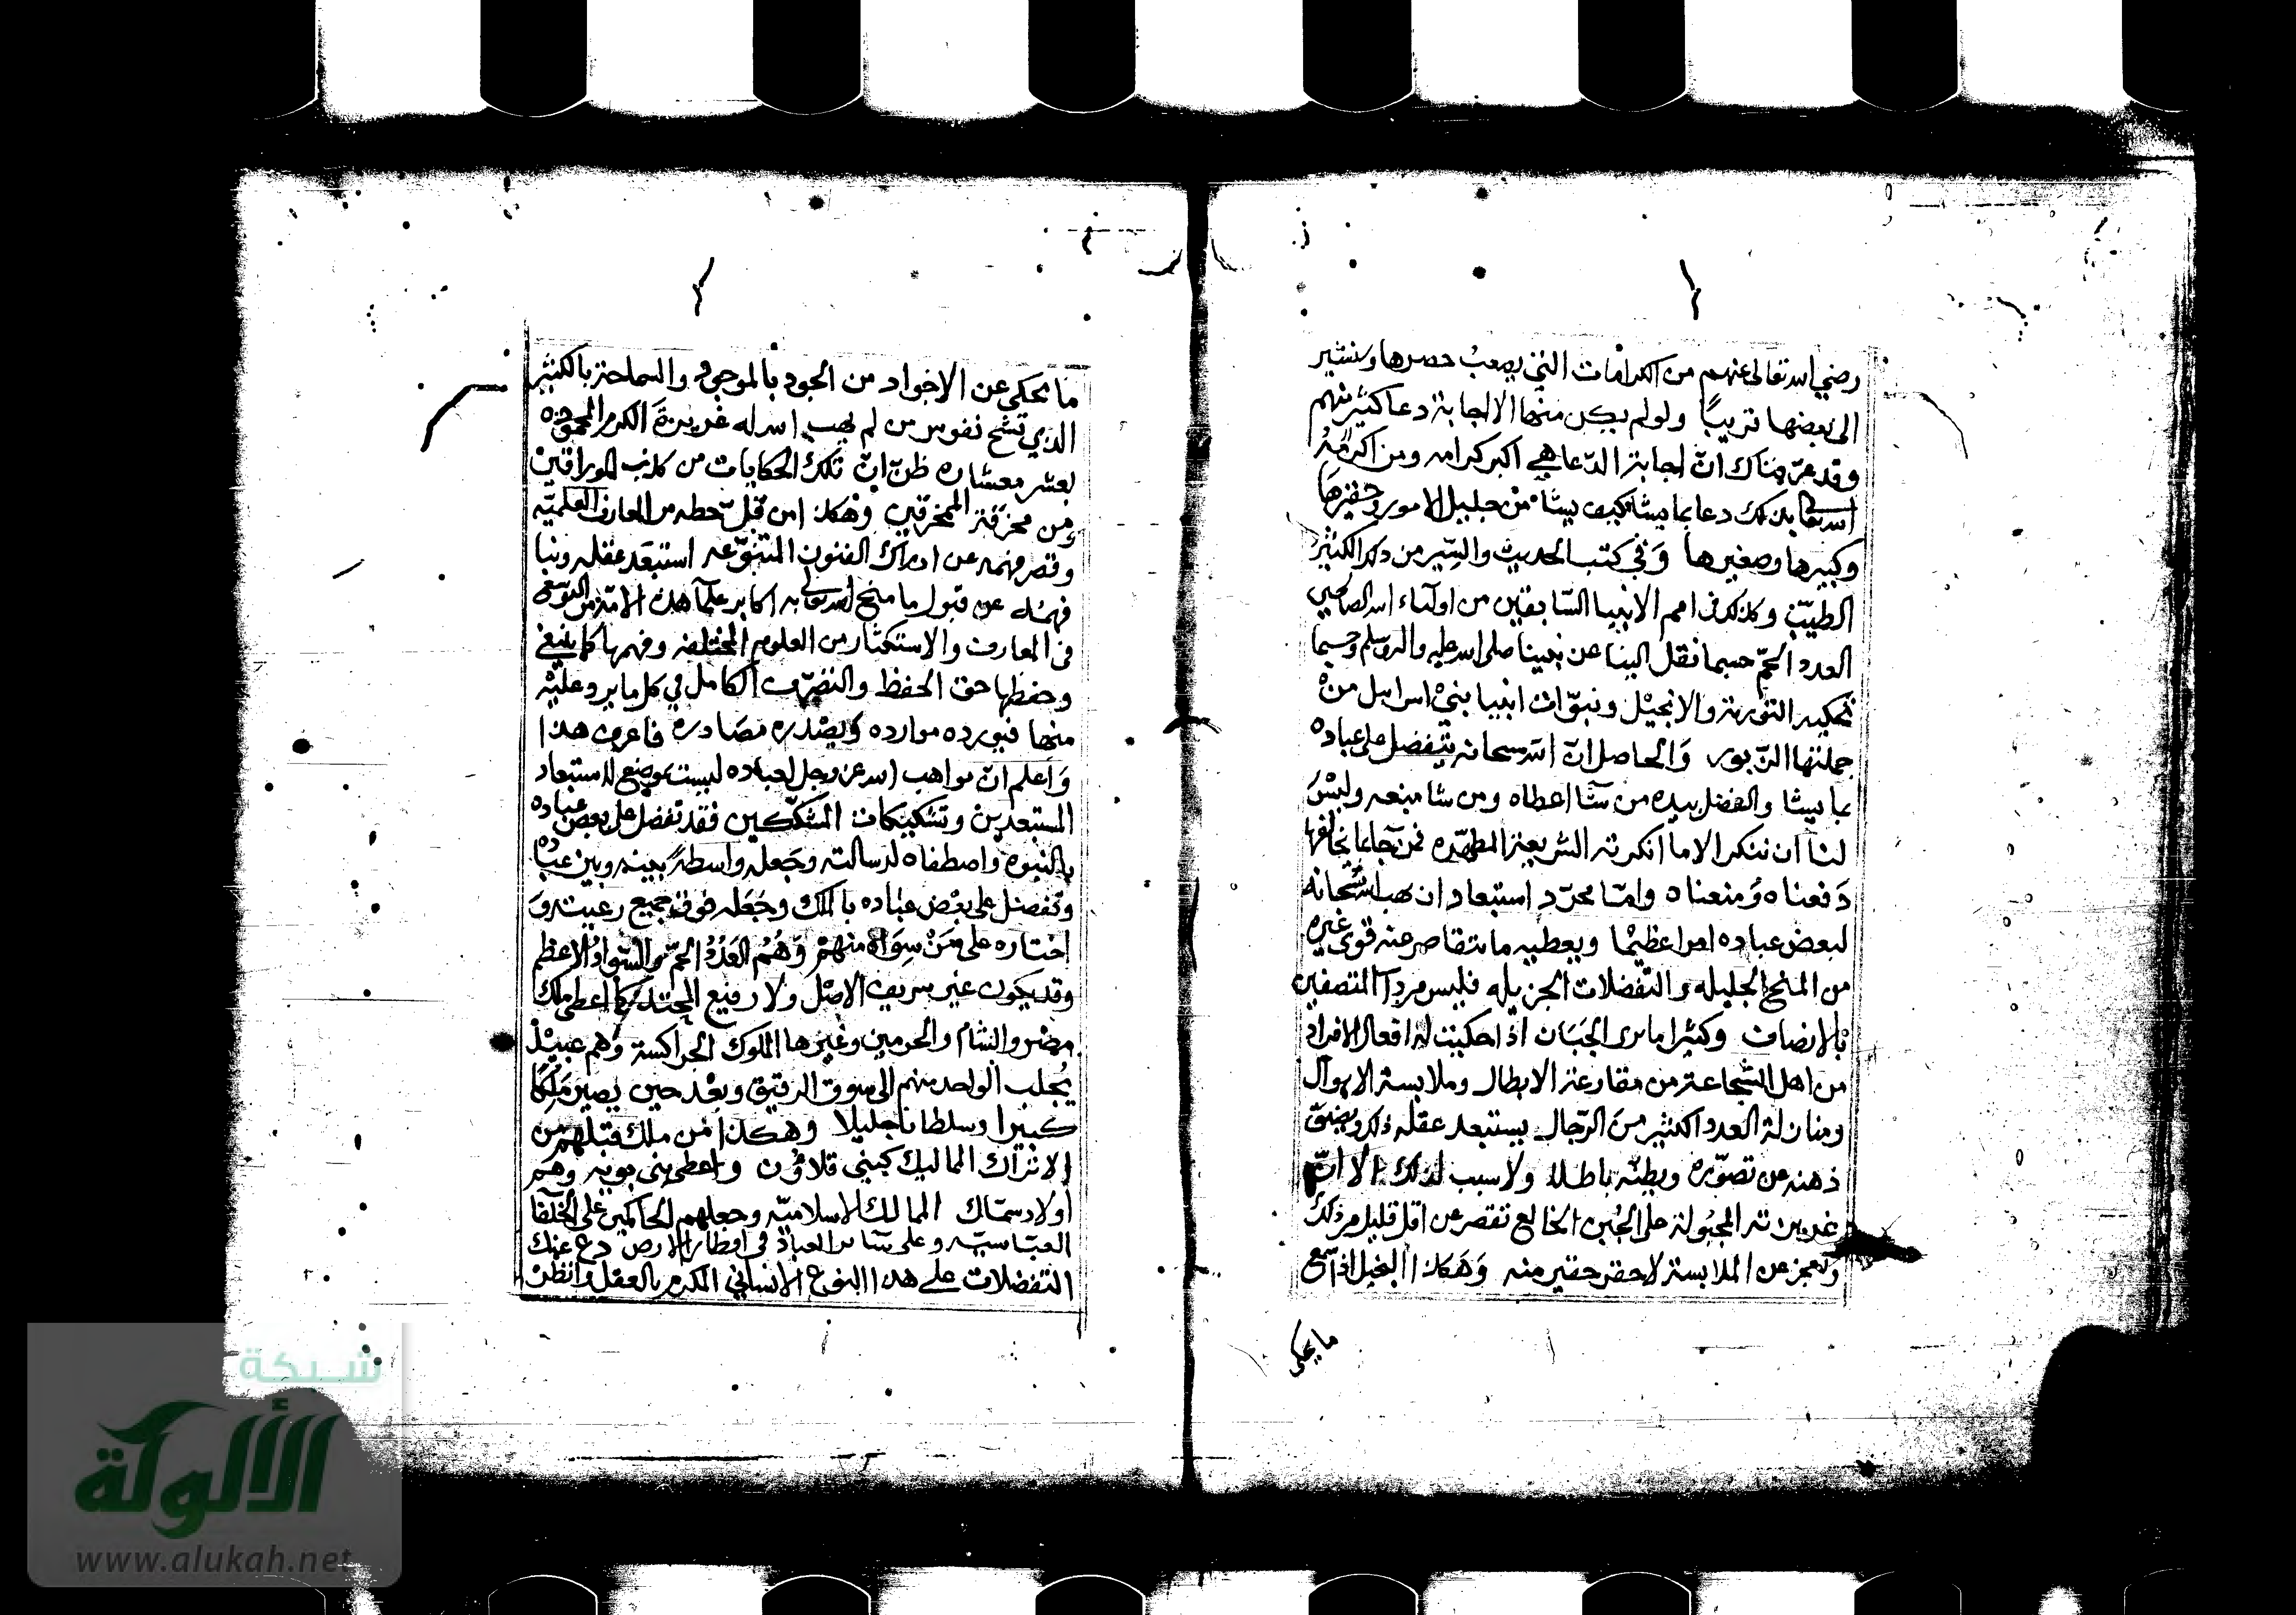 رضي الله تعالى عنهم من الكرامات التي يصعب حصرها وسنشير
الى بعضها قريباً ولو لم يكن منها الا اجابة دعا كثير منهم
وقد عرّفناك انّ اجابة الدّعا هي اكبر كرامه ومن اكرمه
الله تعالى بذلك دعا بما يشا كيف يشا من جليل الامور وحقيرها
وكبيرها وصغيرها وَفي كتب الحديث والسِّير من ذلك الكثير
الطيّب وكذلك في امم الانبيا السّابقين من اولياء الله الصالحين
العدد الجمّ حسبما نقل الينا عن نبينا صلى الله عليه واله وسلم وحسبما
تحكيه التورية والانجيل ونبوّات انبيا بني اسرايل منْ
جملتها الزّبور وَالحاصل انّ الله سبحانه يتفضل على عباده
بما يشا والفضل بيده من شآ اعطاه ومن شا منعه وليسَ
لنا ان ننكر الا ما انكرته الشريعة المطهّره فمن جا بما يخالفها
دَفعناه وَمنعناه وامّا مجرّد استبعاد ان يهب الله سُبحانه
لبعض عباده امرا عظيما ويعطيه ما تتقاصر عنه قوى غيره
من المنح الجليله والتّفضلات الجزيله فليس مرداً المتصفين
بالانصاف وكثيرا ما يرى الجَبَان اذا حكيت له افعال الافراد
من اهل الشجاعة من مقارعة الابطال وملابسة الاهوال
ومنازلة العدد الكثير من الرّجال يستبعد عقله ذلك ويضيق
ذهنه عن تصوّره ويظنّه باطلا ولا سبب لذلك الا انّ
غريزته المجبُولة على الجُبن الخالع تقصر عن اقل قليل من ذلك
وتعجز عن الملابسة لاحقر حقير منه وَهَكذا البخيل اذا سمع
ما يحكى
ما يحكى عن الاجواد من الجود بالموجود والسماحة بالكثير
الذي تشح نفوس من لم يهب الله له غريزةَ الكرم المحموده
بعشر معشاره ظنّ انّ تلك الحكايات من كذب الوراقين
ومن مخرقة الممخرقين وَهكذا من قلّ حظه من المعارف العلميّه
وقصر فهمه عن ادراك الفنون المتنوّعه استبعَد عقله ونبا
فهمُه عن قبول ما منح الله تعالى به اكابر علمآ هذه الامّة من التوسّع
في المعارف والاستكثار من العلوم المختلفه وفهمها كما ينبغي
وحفظها حق الحفظ والتصرّف الكامل في كل ما يرد عليْه
منها فيورده موارده وَيصْدره مصَادره فاعرف هذا
وَاعلم انّ مواهب الله عز وجل لعباده ليست بموضع لاستبعاد
المستبعدين وتشكيكات المشكّكين فقد تفضل على بعض عباده
بالنبوه واصطفاه لرسالته وجَعله واسطةً بينه وبين عباده
وتفضل على بعْض عباده بالملك وجَعَله فوق جميع رعيته وَ
اختاره على مَنْ سِوَاهُ منهمْ وَهُمُ العَدَدُ الجمّ والسّوادُ الاعظم
وقد يكون غير شريف الاصْل ولا رفيع المحتد كما اعطى ملك
مصْر والشام والحرمين وغيرها الملوك الجراكسة وَهم عبيْدٌ
يُجلب الواحد منهم الى سوق الرقيق وبعْد حين يصير مَلِكًا
كبيرا وسلطانا جليلا وهكذا مَن ملك قبْلهمْ من
الاتراك المماليك كبني قلاوُون واعطى بني بويه وَهم
أولاد سمّاك الممالك الاسلاميّه وجعلهم الحاكمين على الخلفآ
العبّاسيّه وعلى سآئر العباد في اقطار الارض دع عنك
التفضلات على هذا النوع الانساني المكرم بالعقل وانظرْ
شبكة
الألوكة
www.alukah.net